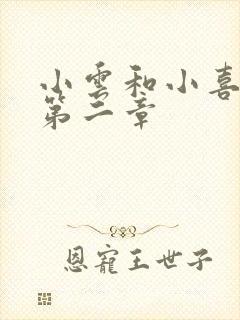 小雲和小喜
第二章
恩寵王世子